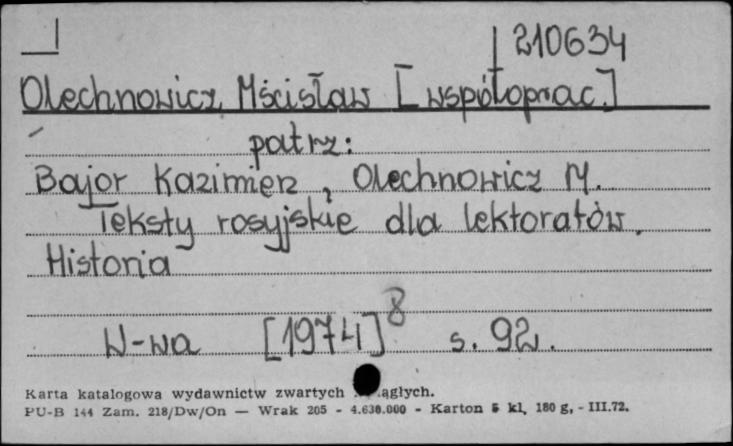 210634
Olechnowicz Mścisław [współoprac.]
patrz:
Bajor Kazimierz, Olechnowicz M.
Teksty rosyjskie dla lektoratów.
Historia
W-wa [1974] 8 s. 92.
Karta katalogowa wydawnictw zwartych ągłych.
PU-B 144 Zam. 218/Dw/On — Wrak 205 - 4.630.000 - Karton 5 kl. 180 g. - III.72.